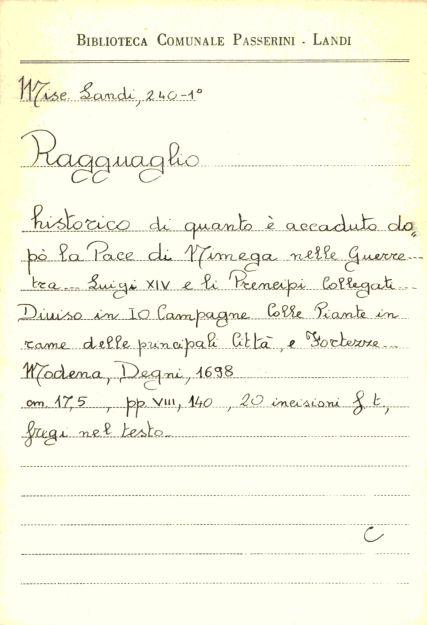 BIBLIOTECA COMUNALE PASSERINI - LANDI
Misc Landi, 240-1º
Ragguaglio
historico di quanto è accaduto do„
pò la Pace di Nimega nelle Guerre...
tra... Luigi XIV e li Prencipi Collegati...
Diviso in 10 Campagne Colle Piante in
rame delle principali Città, e Fortezze...
Modena, Degni, 1698
cm. 17,5 , pp. VIII, 140 , 20 incisioni f. t.,
fregi nel testo.
C